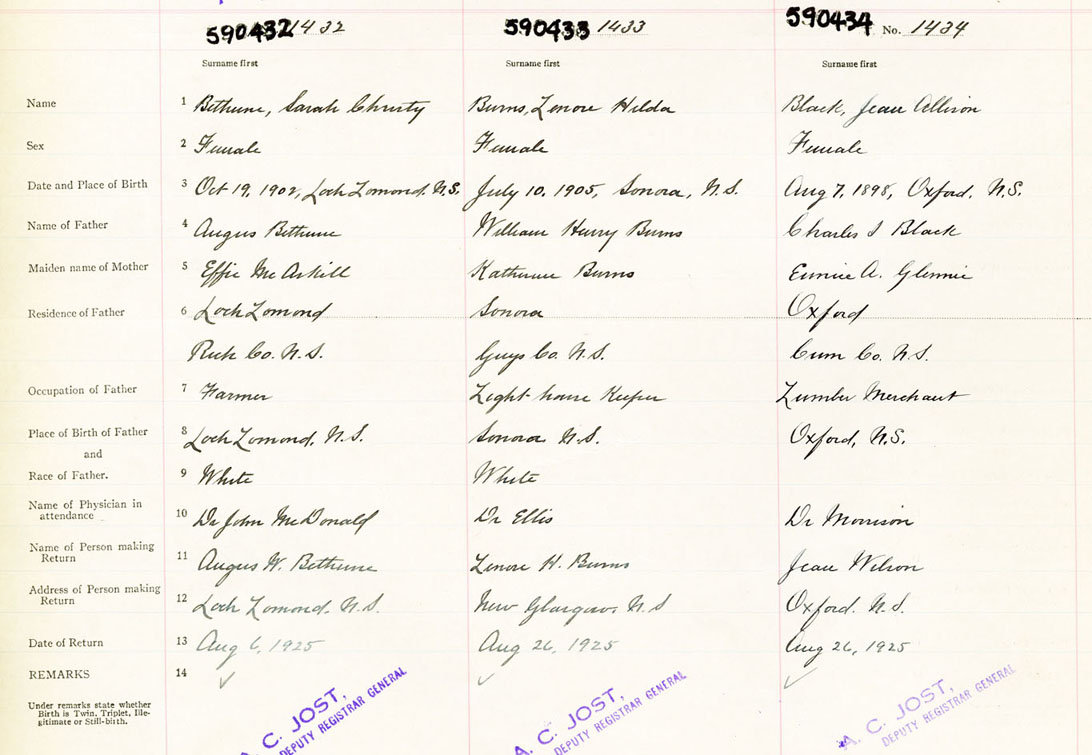 590432 1432 590433 1433 590434 No. 1434
Surname first Surname first Surname first
Name 1 Bethune, Sarah Christy Burns, Lenore Hilda Black, Jean Allison
Sex 2 Female Female Female
Date and Place of Birth 3 Oct 19, 1902, Loch Lomond, N.S. July 10, 1905, Sonora, N.S. Aug 7, 1898, Oxford, N.S.
Name of Father 4 Angus Bethune William Henry Burns Charles I Black
Maiden name of Mother 5 Effie McAskill Katherine Burns Eunice A. Glennie
Residence of Father 6 Loch Lomond Sonora Oxford
Rich Co. N.S. Guys Co. N.S. Cum Co. N.S.
Occupation of Father 7 Farmer Light house Keeper Lumber Merchant
Place of Birth of Father 8 Loch Lomond, N.S. Sonora N.S. Oxford, N.S.
and
Race of Father. 9 White White
Name of Physician in
attendance 10 Dr John McDonald Dr Ellis Dr Morrison
Name of Person making
Return 11 Angus W. Bethune Lenore H. Burns Jean Wilson
Address of Person making
Return 12 Loch Lomond, N.S. New Glasgow N.S Oxford. N.S.
Date of Return 13 Aug 6, 1925 Aug 26, 1925 Aug 26, 1925
REMARKS 14
Under remarks state whether
Birth is Twin, Triplet, Ille-
gitimate or Still-birth.
A. C. JOST,
DEPUTY REGISTRAR GENERAL
A. C. JOST,
DEPUTY REGISTRAR GENERAL
A. C. JOST,
DEPUTY REGISTRAR GENERAL